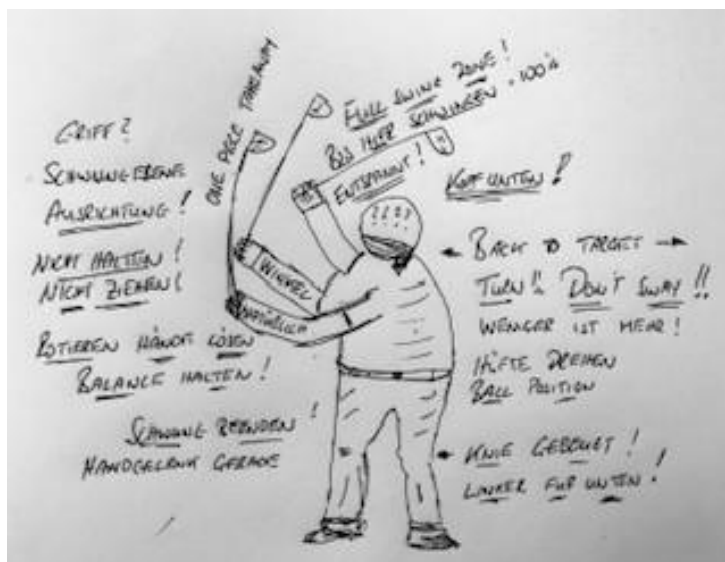 GRIFF?
SCHWUNGEBENE
AUSRICHTUNG!
NICHT HALTEN!
NICHT ZIEHEN!
ROTIEREN HÄNDE LÖSEN
BALANCE HALTEN!
SCHWUNG BEENDEN!
HANDGELENK GERADE
ONE PIECE TAKEAWAY
FULL SWING ZONE!
BIS HIER SCHWINGEN = 100%
ENTSPANNT!
WINKEL
NATÜRLICH
????
KOPF UNTEN!!
BACK TO TARGET
TURN!! DON'T SWAY!!
WENIGER IST MEHR!
HÜFTE DREHEN
BALL POSITION
KNIE GEBEUGT!
LINKER FUß UNTEN!